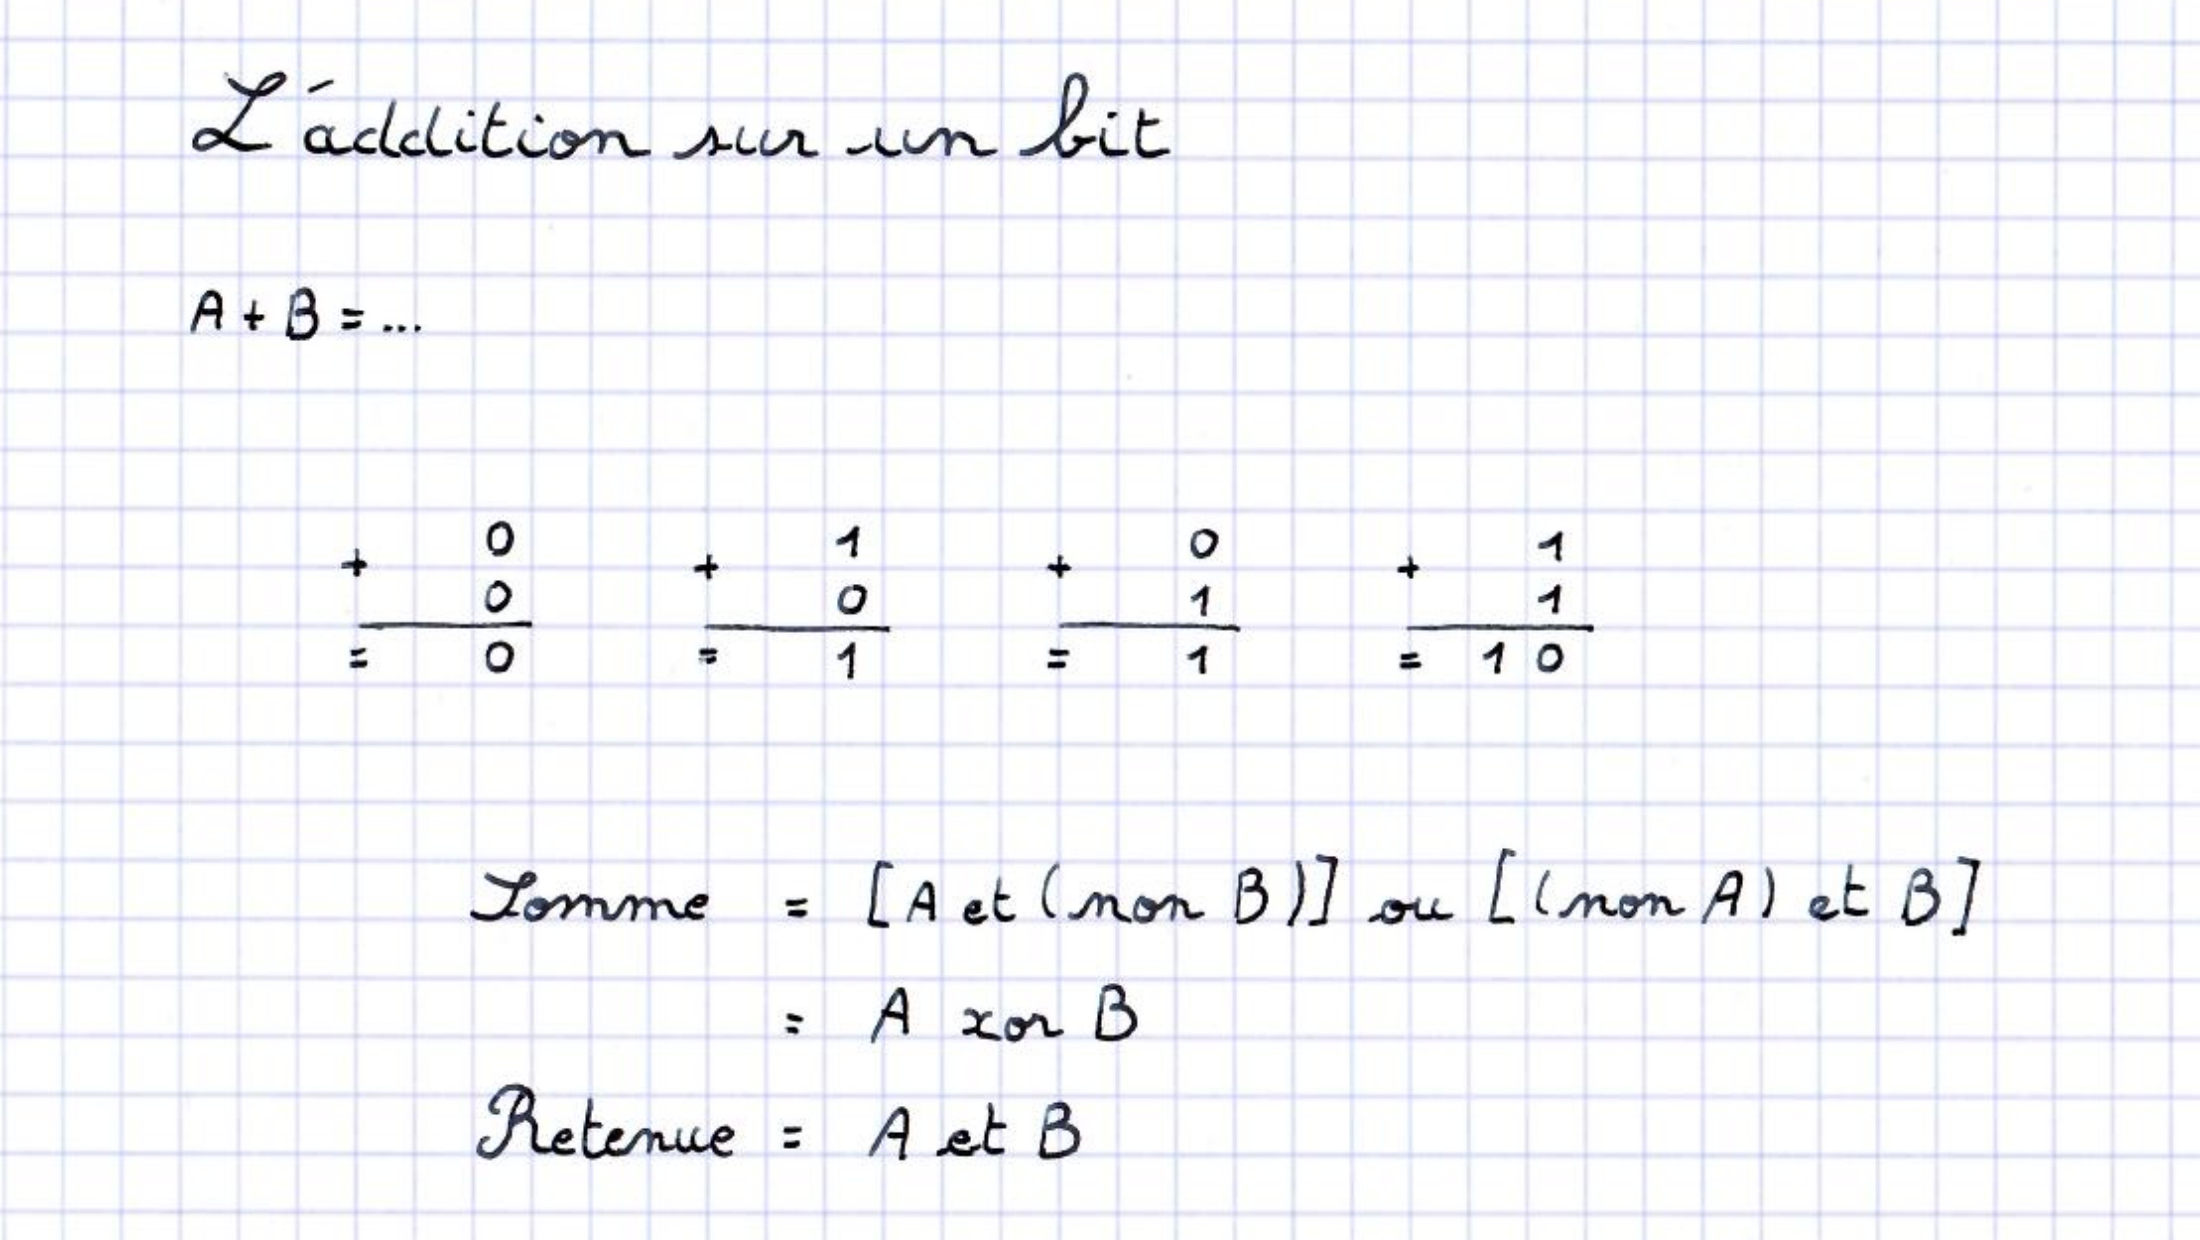 L'addition sur un bit
A + B = ...
+ 0 + 1 + 0 + 1
0 0 1 1
= 0 = 1 = 1 = 1 0
Somme = [A et (non B)] ou [(non A) et B]
= A xor B
Retenue = A et B